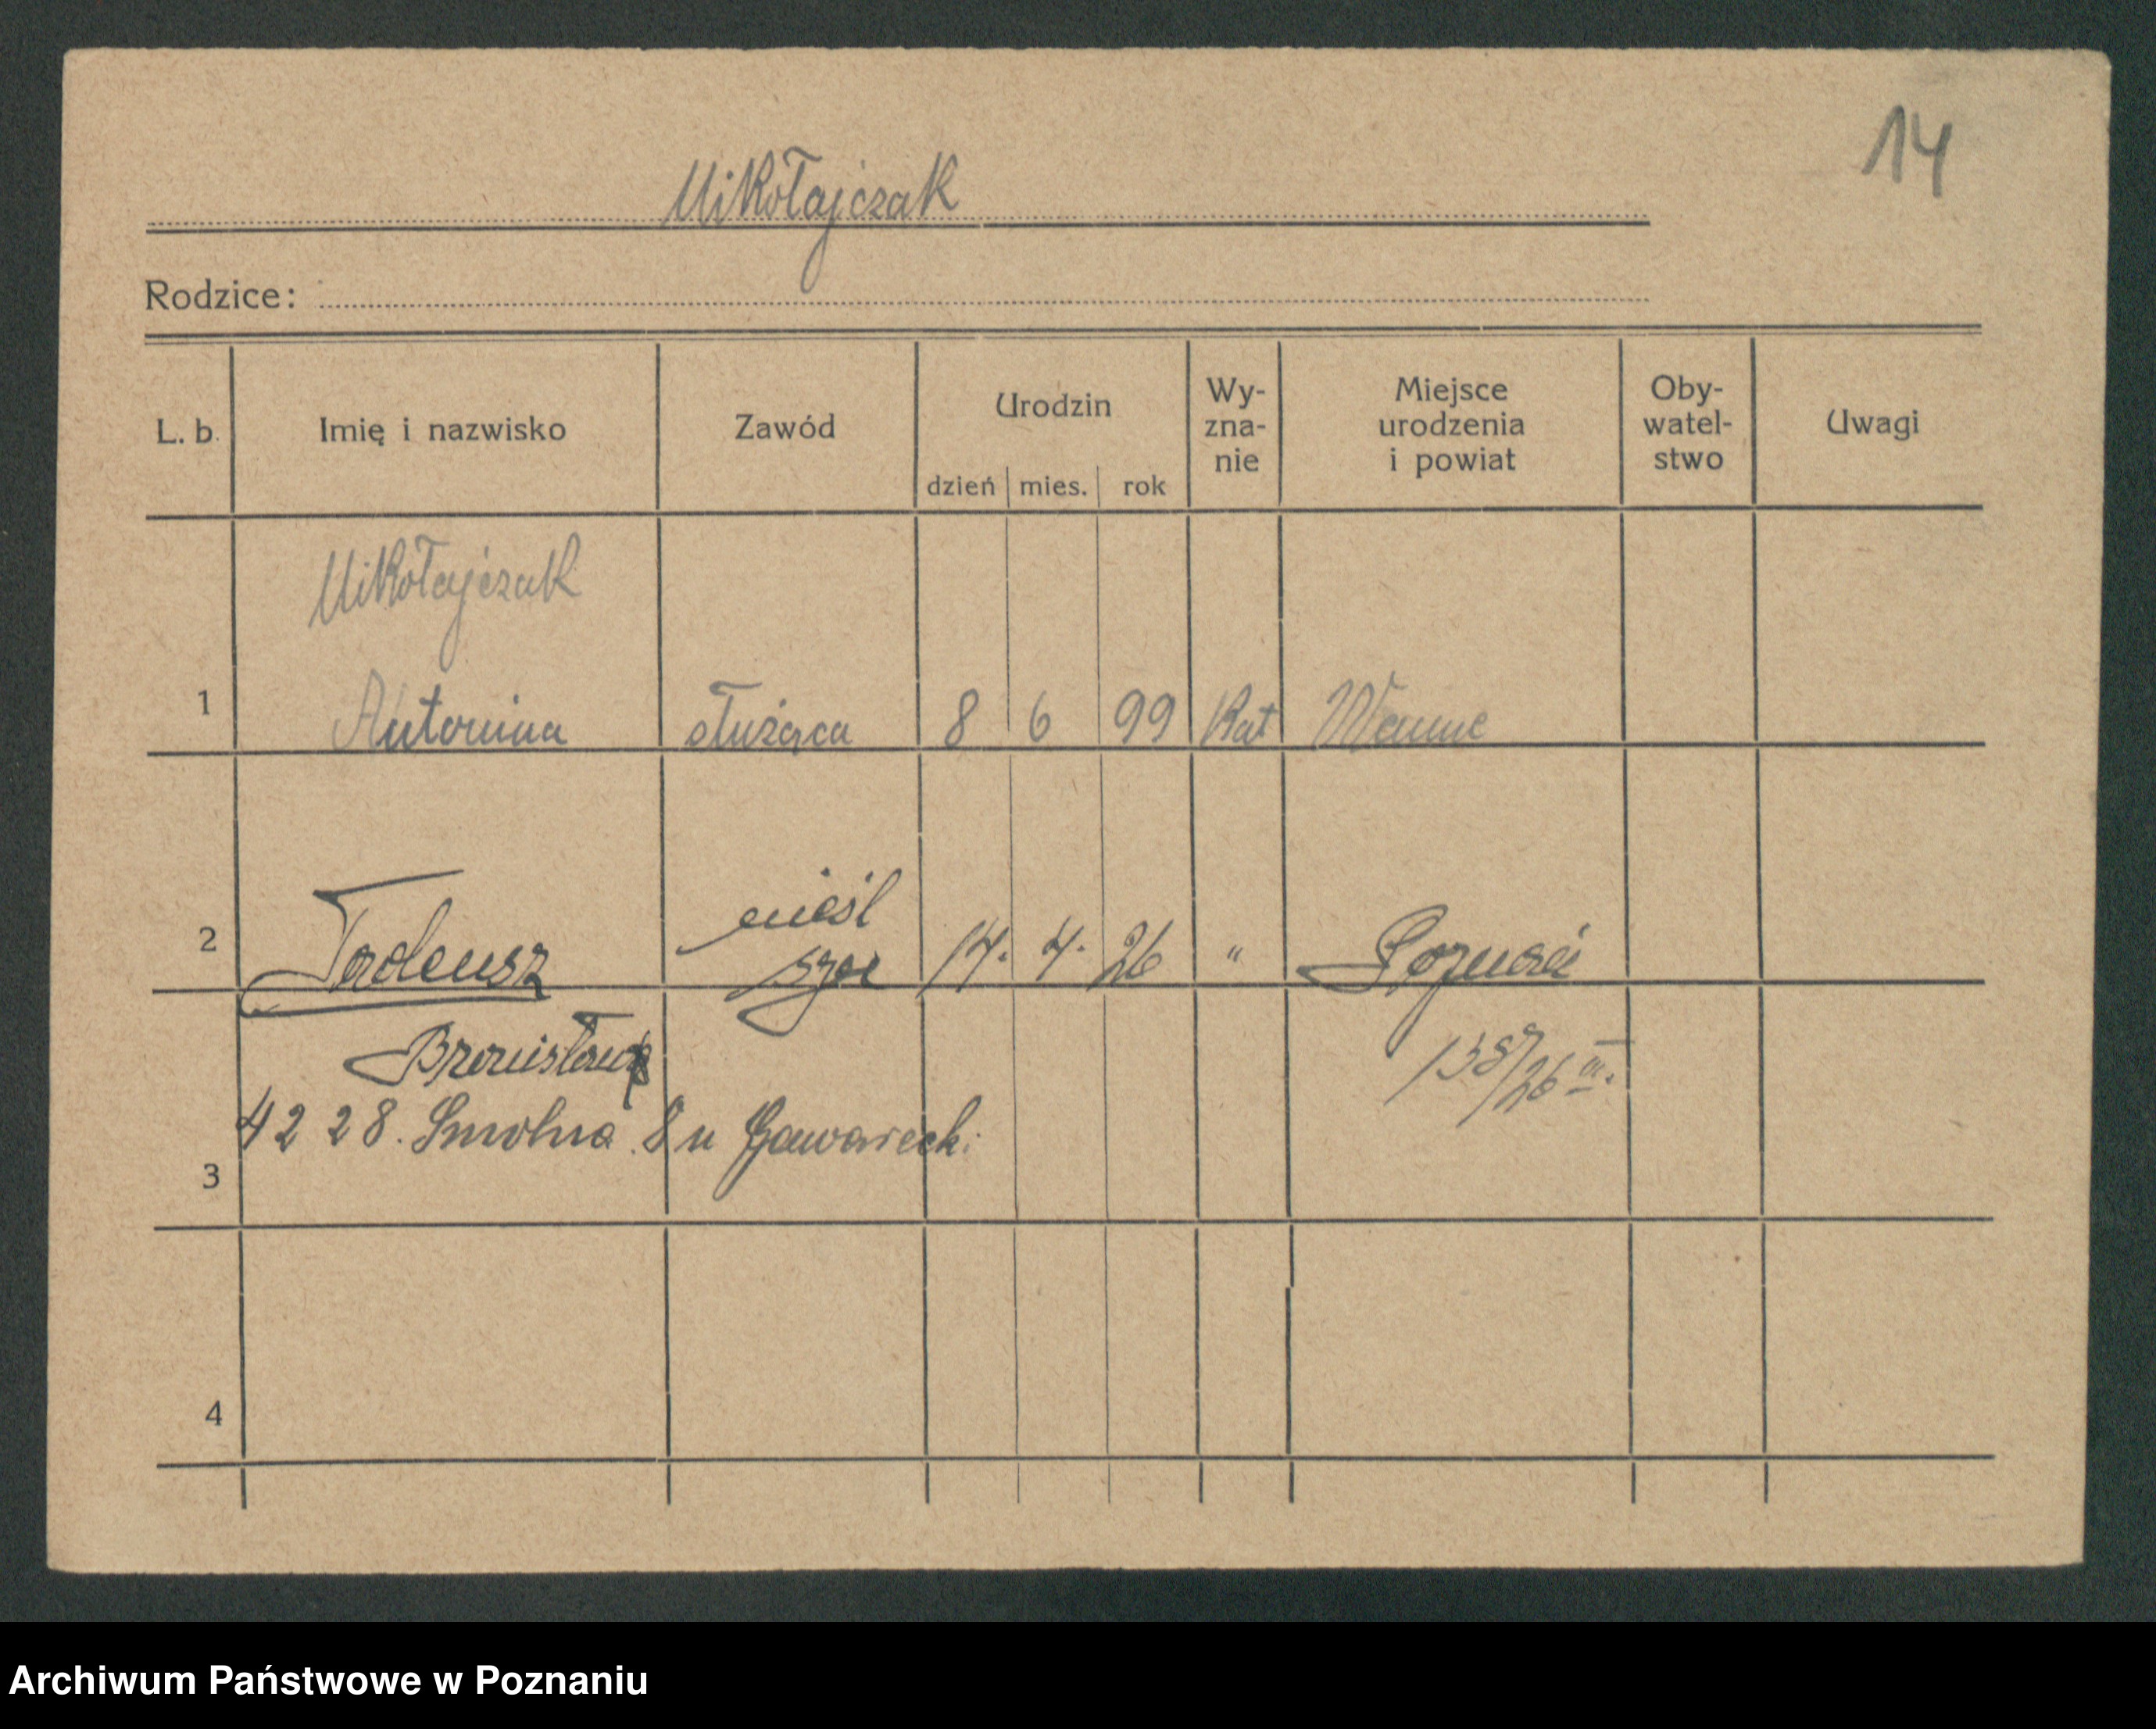 14
Mikołajczak
Rodzice:
L. b. Imię i nazwisko Zawód Urodzin dzień mies. rok Wy-zna-nie Miejsce urodzenia i powiat Oby-watel-stwo Uwagi
Mikołajczak
1 Antonina służąca 8 6 99 Kat Wanne
nieśl
2 Tadeusz 14. 4. 26 " Poznań
Bronisław 138/26 III.
42 28. Smolna 8 u Gawarecki
3
4
Archiwum Państwowe w Poznaniu